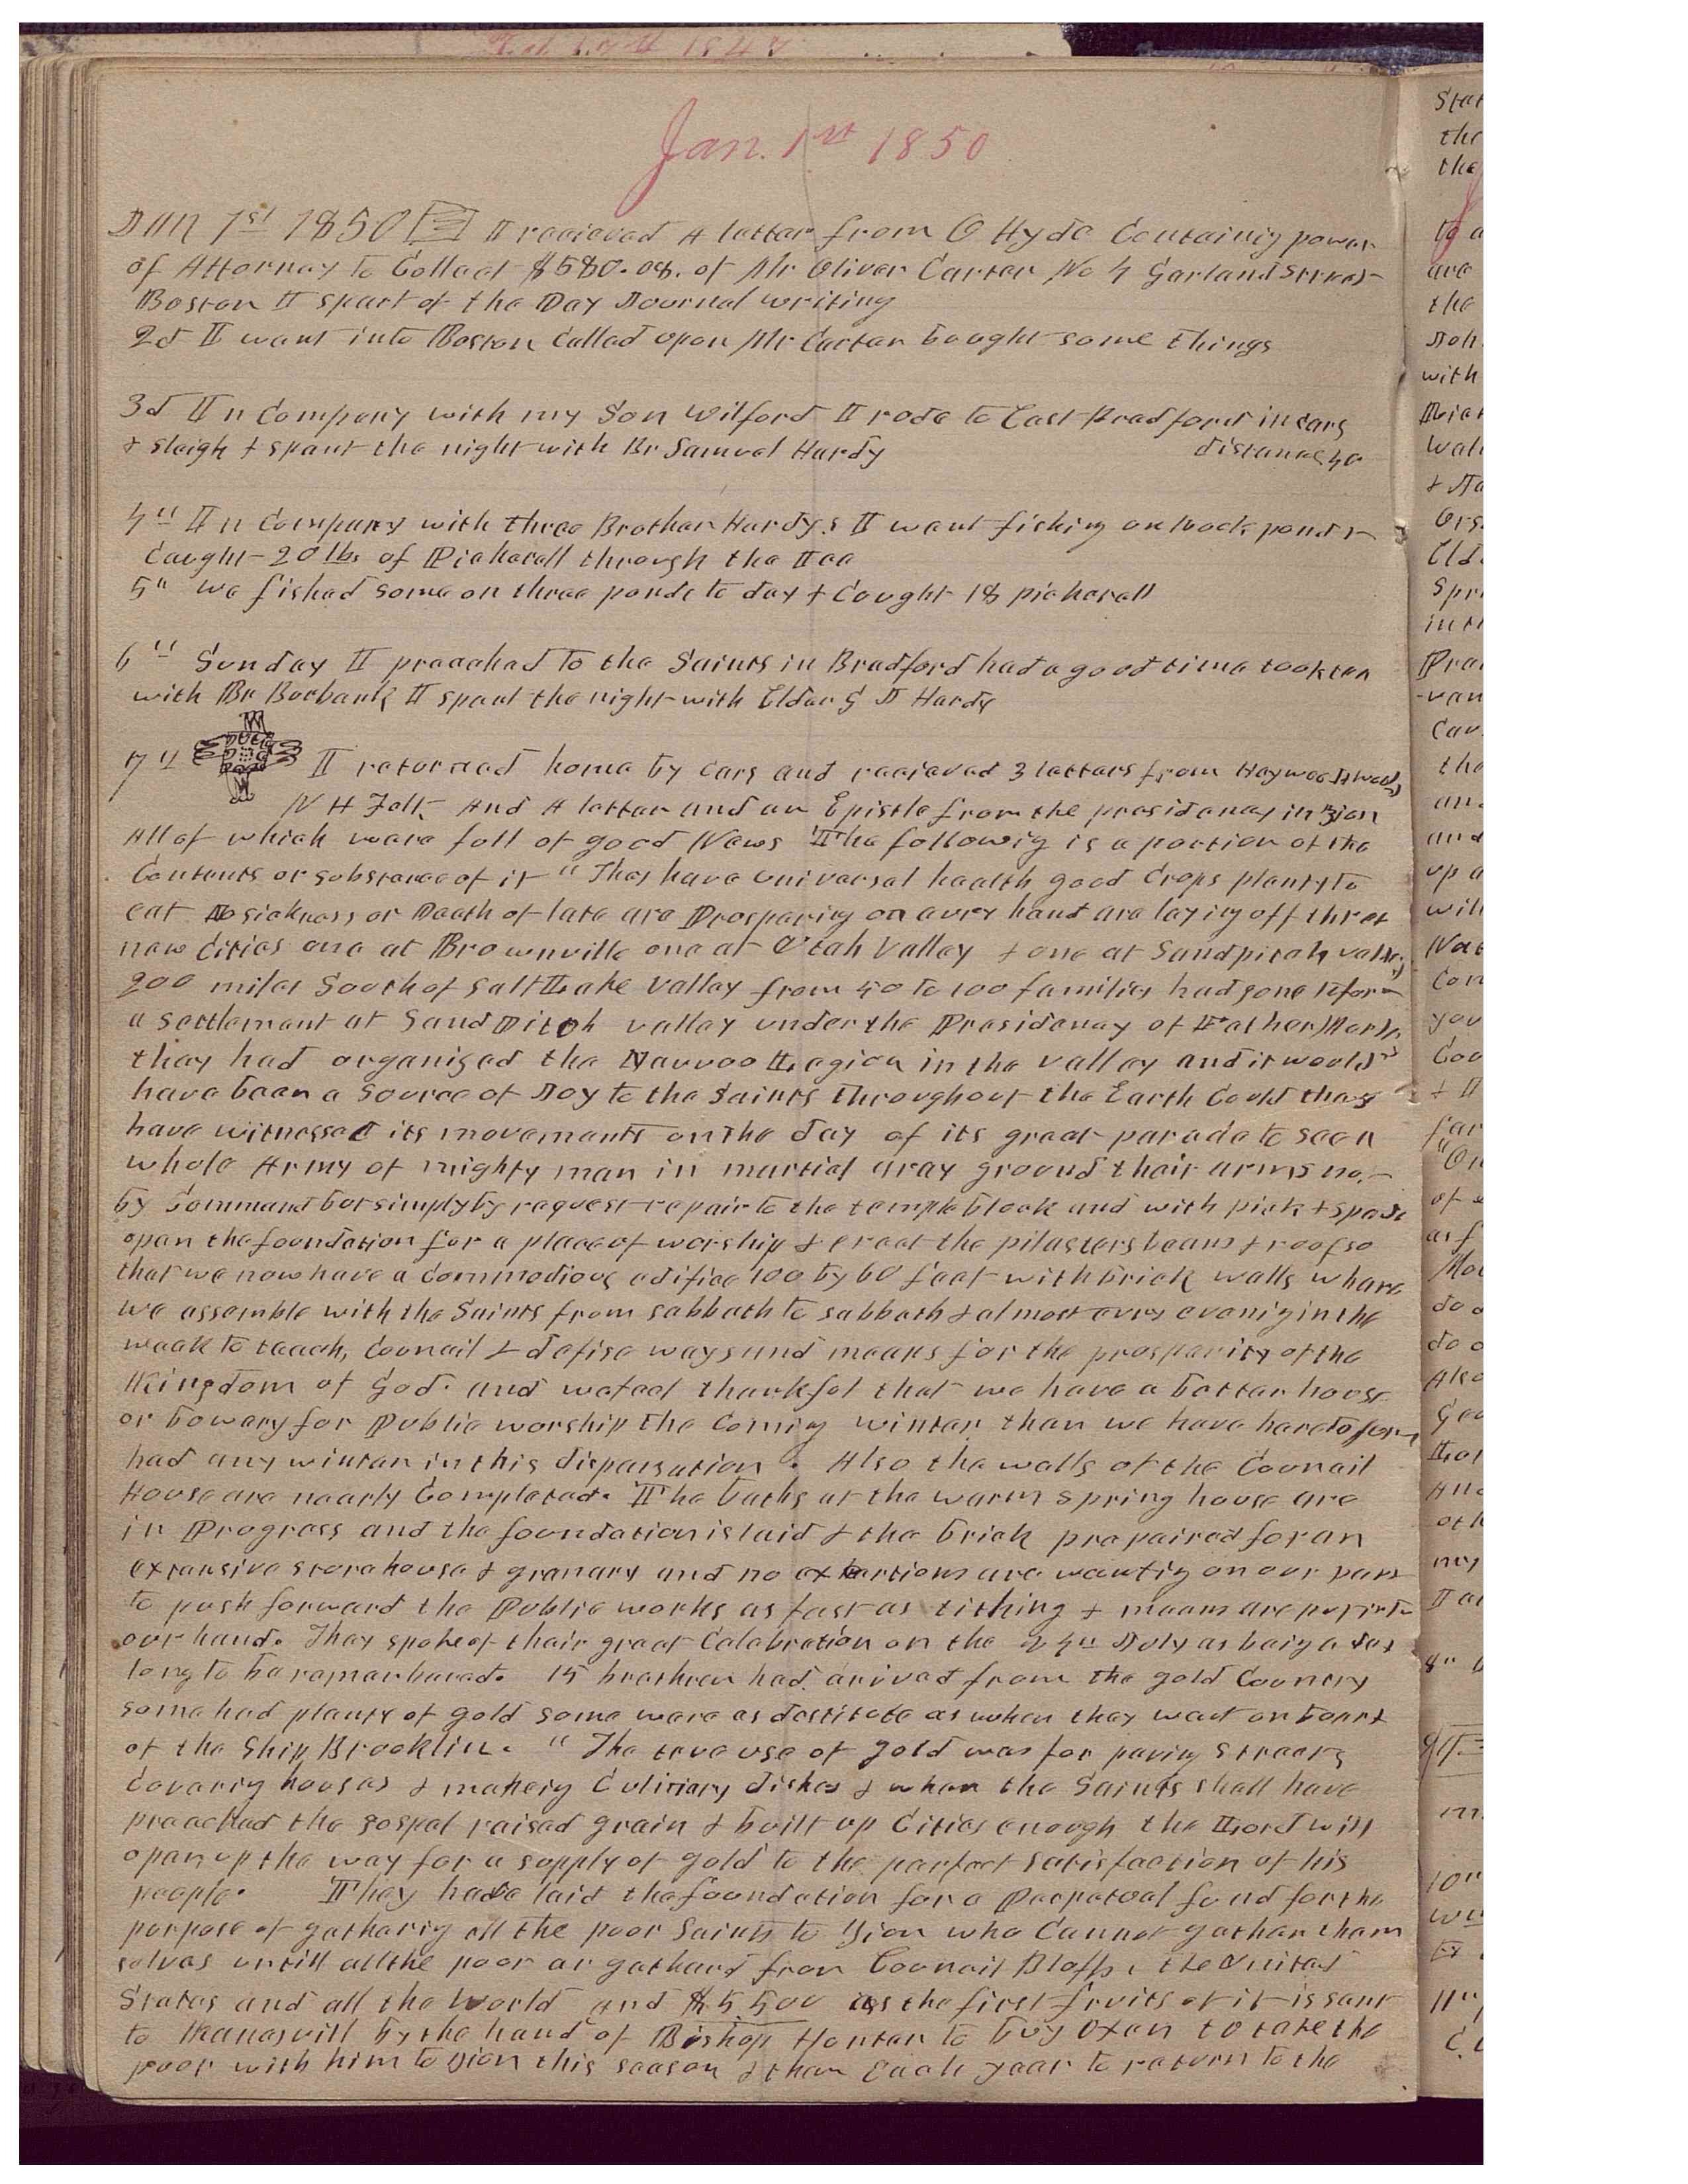 Jan. 1st 1850
JAN 1st 1850 I received A letter from O Hyde Containig power
of Attorney to Collect $580.08. of Mr Oliver Carter No 4 Garland Street
Boston I spent of the Day Journal writing
2d I went into Boston Called upon Mr Carter bought some things
3d In Company with my Son Wilford I rode to East Bradford in cars
& sleigh & spent the night with Br Samuel Hardy distance 40
4th In Company with three Brother Hardy.s I went fishing on ponds &
Caught 20 lbs of Pickerell through the Ice
5th we fished some on three ponds to day & Caught 18 pickerell
6th Sunday I preached to the Saints in Bradford had a good time took tea
with Br Burbank I spent the night with Elder G J Hardy
7th I returned home by Cars and received 3 letters from Haywood
N H Felt And A letter and an Epistle from the presidency in Zion
All of which were full of good News The followig is a portion of the
Contents or substance of it "They have universal health, good Crops plenty to
eat No sickness or Death of late are Prosperig on evry hand are laying off three
new Cities one at Brownville one at Utah Valley & one at Sandpitch valley
200 miles South of Salt Lake Valley from 50 to 100 families had gone to form
a settlement at Sand Pitch valley under the Presidency of Father Morly
they had organized the Nauvoo Legion in the valley and it would
have been a Source of Joy to the Saints throughout the Earth Could they
have witnessed its movements on the day of its great parade to see a
whole Army of mighty men in martial aray ground their arms not
by Command but simply by request repair to the temple block and with pick & spade
open the foundation for a place of worship & erect the pilasters beams & roof so
that we now have a commodious edifice 100 by 60 feet with brick walls where
we assemble with the Saints from sabbath to sabbath & almost evry evenig in the
week to teach, Council & defise ways and means for the prosperity of the
Kingdom of God. and we feel thankful that we have a better house
or bowery for Public worship the Comig winter than we have heretoforn
had any winter in this dispensation. Also the walls of the Council
House are nearly Completed. The baths at the warm spring house are
in Progress and the foundation is laid & the brick prepaired for an
extensive storehouse & granary and no exhertions are wantig on our part
to push forward the Public works as fast as tithing & means are put into
our hand. They spoke of their great Calabration on the 24th July as beig a day
long to be remembered. 15 brethren had arived from the gold Country
some had plenty of gold some were as destitute as when they went on board
of the Ship Brooklin. " The true use of gold was for pavig streets
Coverig houses & makeig Culiniary dishes & when the Saints shall have
preached the gospel raised grain & built up Cities enough the Lord will
open up the way for a supply of gold to the perfect satisfaction of his
people. They have laid the foundation for a Perpetual fund for the
purpose of gatherig all the poor Saints to Zion who Cannot gather them
selves untill all the poor ar gathered from Council Bluffs, the United
States and all the World and $5,500 as the first fruits of it is sent
to Kanesvill by the hand of Bishop Hunter to buy Oxen to take the
poor with him to Zion this season & then Each year to return to the